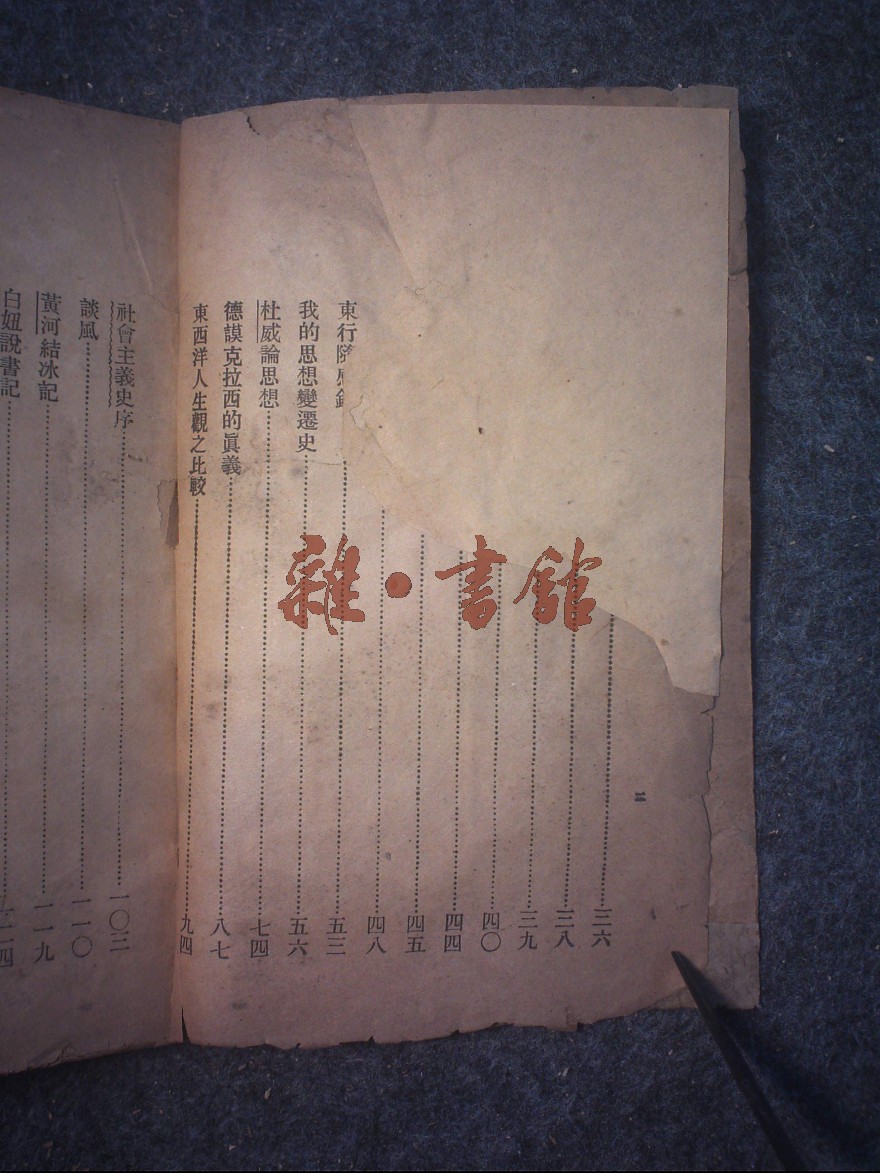 二
三六
三八
三九
四〇
四四
四五
四八
東行隨感錄………五三
我的思想變遷史………五六
杜威論思想………七四
德謨克拉西的眞義………八七
東西洋人生觀之比較………九四
社會主義史序………一〇三
談風………一一〇
黃河結冰記………一一九
白妞說書記………一二四
雜·書館